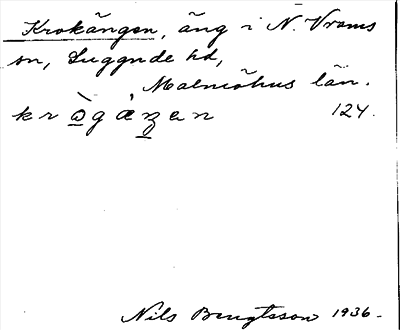 Krokängen, äng i N. Vrams
sn, Luggude hd,
Malmöhus län.
124.
Nils Bengtsson 1936.